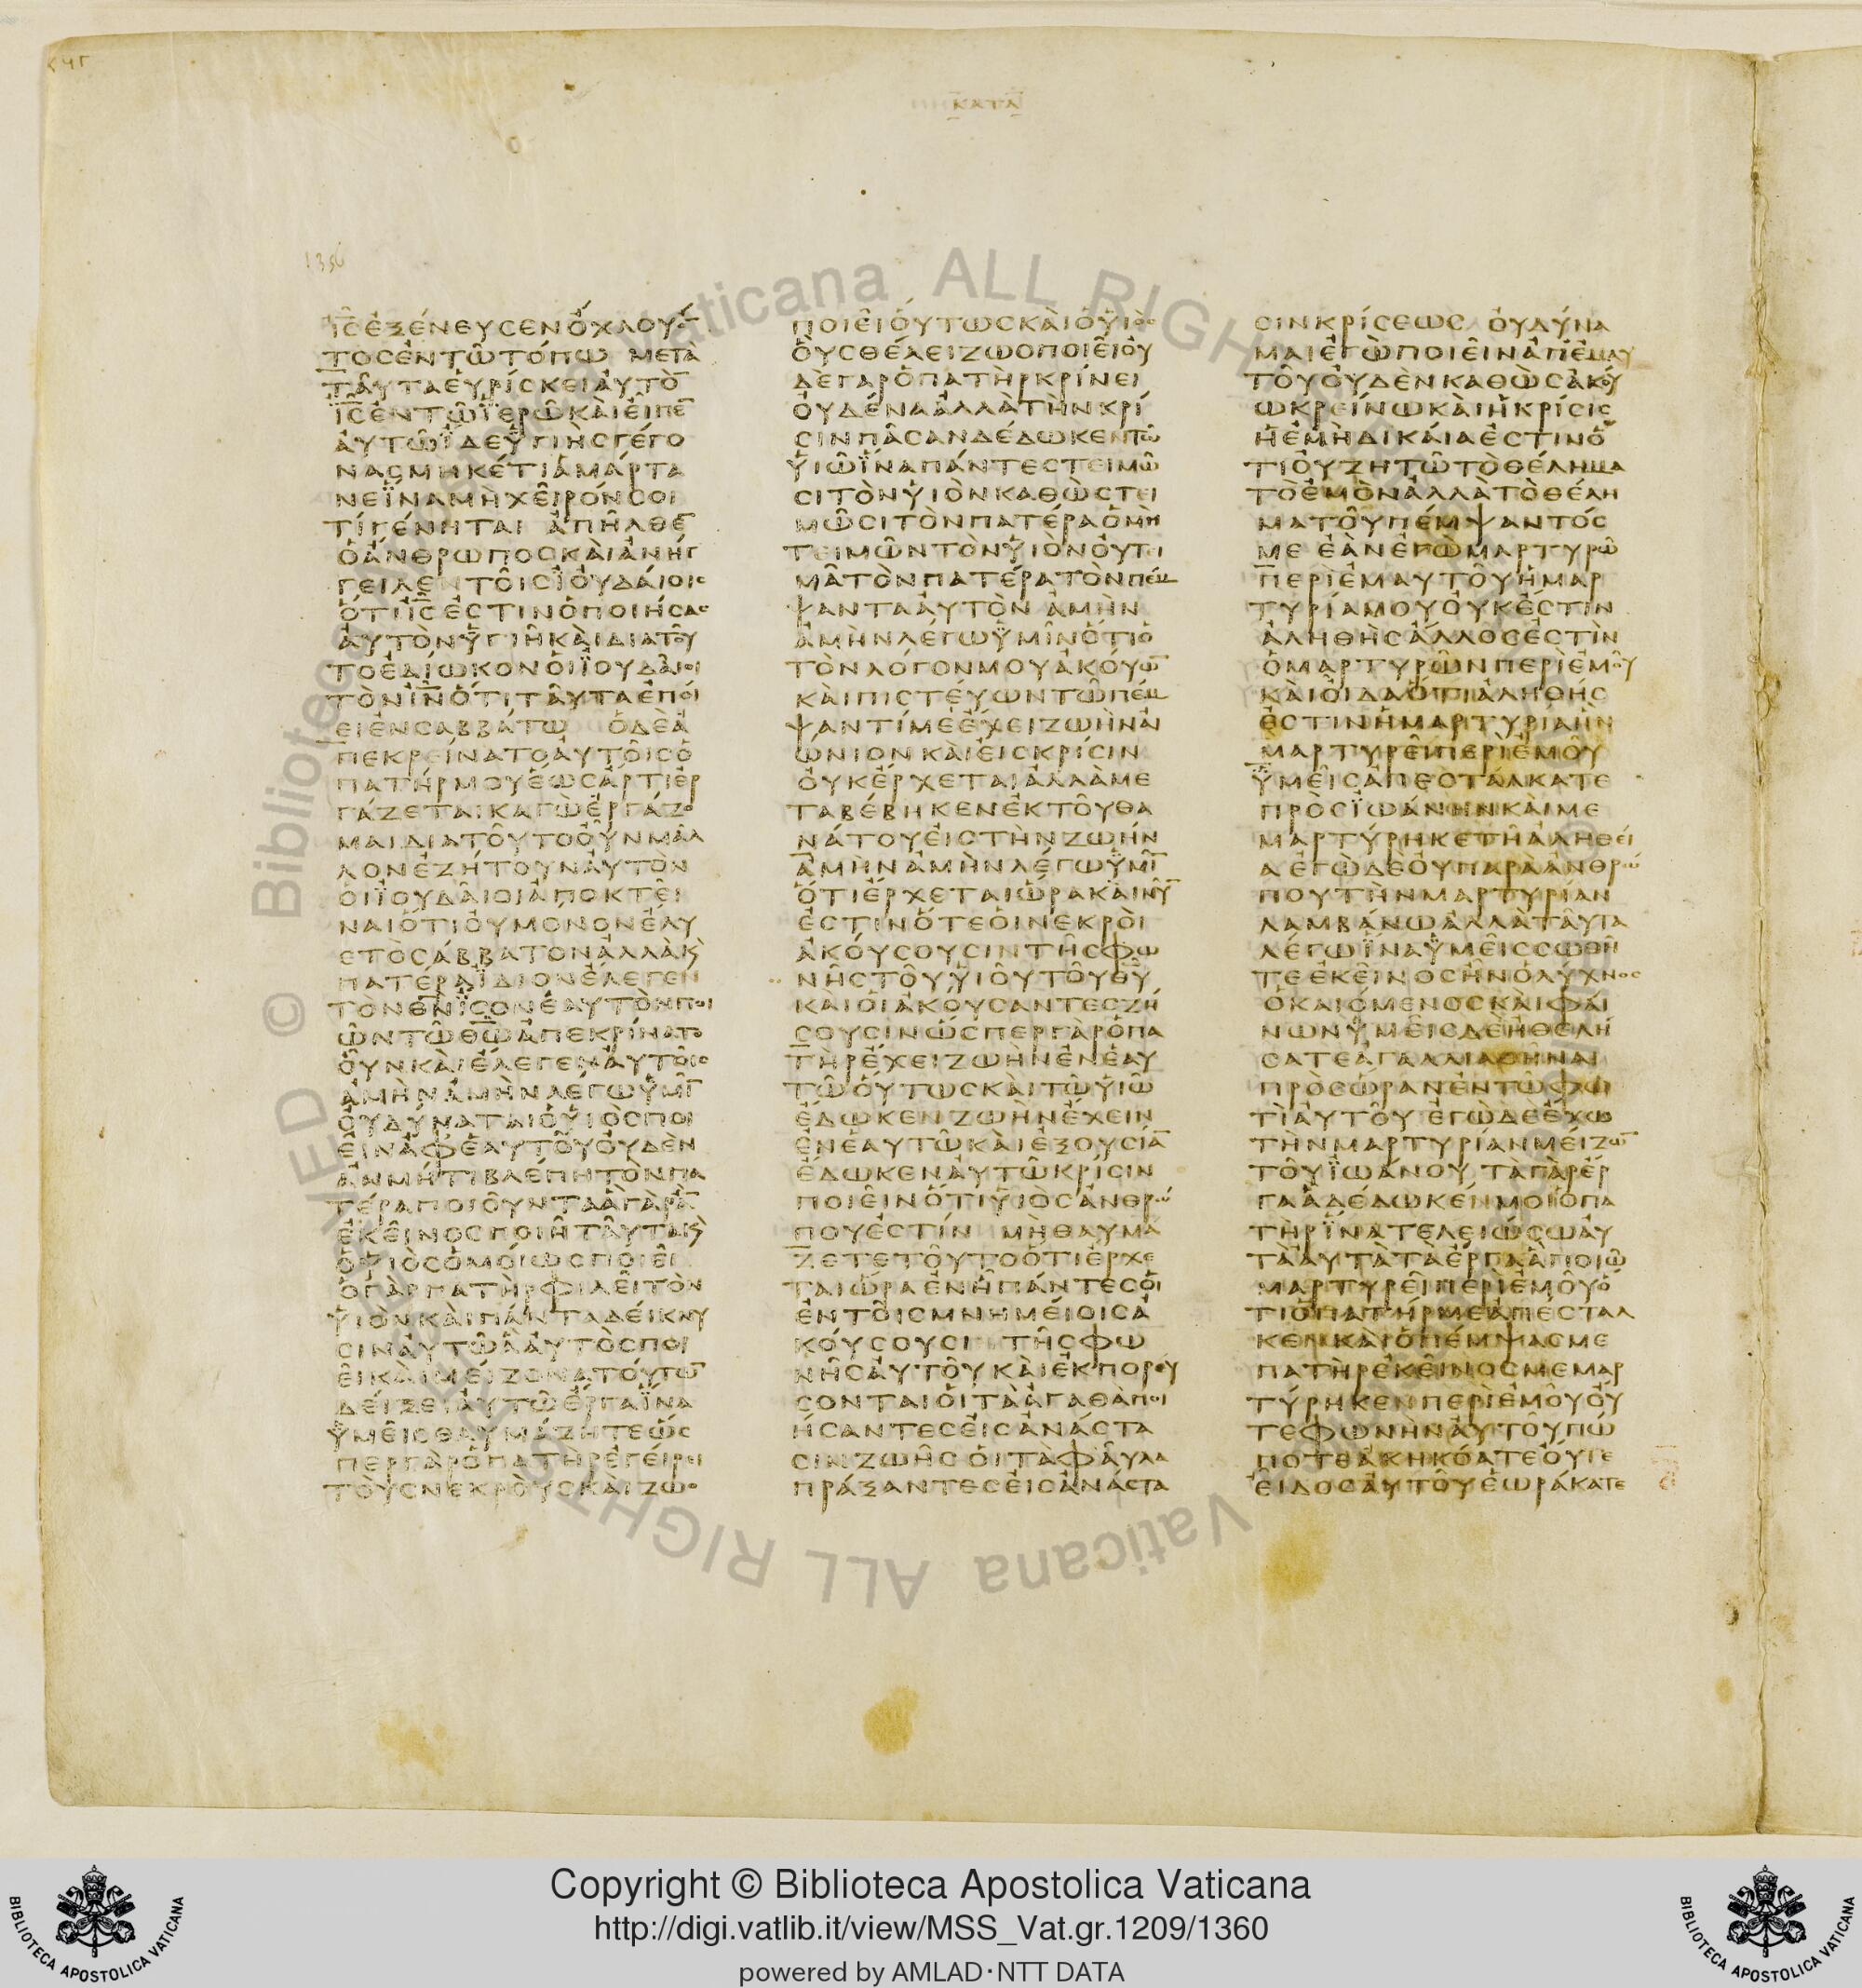 ϞΓ
ΚΑΤΑ
1356
ΙϹ ΕΞΕΝΕΥϹΕΝ ΟΧΛΟΥ ΟΝ
ΤΟϹ ΕΝ ΤΩ ΤΟΠΩ ΜΕΤΑ
ΤΑΥΤΑ ΕΥΡΙϹΚΕΙ ΑΥΤΟ̅
ΙϹ ΕΝ ΤΩ ΙΕΡΩ ΚΑΙ ΕΙΠΕ̅
ΑΥΤΩ ΙΔΕ ΥΓΙΗϹ ΓΕΓΟ
ΝΑϹ ΜΗΚΕΤΙ ΑΜΑΡΤΑ
ΝΕ ΙΝΑ ΜΗ ΧΕΙΡΟΝ ϹΟΙ
ΤΙ ΓΕΝΗΤΑΙ ΑΠΗΛΘΕ̅
Ο ΑΝΘΡΩΠΟϹ ΚΑΙ ΑΝΗΓ
ΓΕΙΛΕΝ ΤΟΙϹ ΙΟΥΔΑΙΟΙϹ
ΟΤΙ ΙϹ ΕϹΤΙΝ Ο ΠΟΙΗϹΑϹ
ΑΥΤΟΝ ΥΓΙΗ ΚΑΙ ΔΙΑ ΤΟΥ
ΤΟ ΕΔΙΩΚΟΝ ΟΙ ΙΟΥΔΑΙΟΙ
ΤΟΝ ΙΝ ΟΤΙ ΤΑΥΤΑ ΕΠΟΙ
ΕΙ ΕΝ ϹΑΒΒΑΤΩ Ο ΔΕ Α
ΠΕΚΡΕΙΝΑΤΟ ΑΥΤΟΙϹ Ο
ΠΑΤΗΡ ΜΟΥ ΕΩϹ ΑΡΤΙ ΕΡ
ΓΑΖΕΤΑΙ ΚΑΓΩ ΕΡΓΑΖΟ
ΜΑΙ ΔΙΑ ΤΟΥΤΟ ΟΥΝ ΜΑΛ
ΛΟΝ ΕΖΗΤΟΥΝ ΑΥΤΟΝ
ΟΙ ΙΟΥΔΑΙΟΙ ΑΠΟΚΤΕΙ
ΝΑΙ ΟΤΙ ΟΥ ΜΟΝΟΝ ΕΛΥ
Ε ΤΟ ϹΑΒΒΑΤΟΝ ΑΛΛΑ Κ
ΠΑΤΕΡΑ ΙΔΙΟΝ ΕΛΕΓΕΝ
ΤΟΝ ΘΝ ΙϹΟΝ ΕΑΥΤΟΝ ΠΟΙ
ΩΝ ΤΩ ΘΩ ΑΠΕΚΡΙΝΑΤΟ
ΟΥΝ ΚΑΙ ΕΛΕΓΕΝ ΑΥΤΟΙϹ
ΑΜΗΝ ΑΜΗΝ ΛΕΓΩ ΥΜΙ̅
ΟΥ ΔΥΝΑΤΑΙ Ο ΥΙΟϹ ΠΟΙ
ΕΙΝ ΑΦ ΕΑΥΤΟΥ ΟΥΔΕΝ
ΑΝ ΜΗ ΤΙ ΒΛΕΠΗ ΤΟΝ ΠΑ
ΤΕΡΑ ΠΟΙΟΥΝΤΑ Α ΓΑΡ Α̅
ΕΚΕΙΝΟϹ ΠΟΙΗ ΤΑΥΤΑ Κ
Ο ΥΙΟϹ ΟΜΟΙΩϹ ΠΟΙΕΙ
Ο ΓΑΡ ΠΑΤΗΡ ΦΙΛΕΙ ΤΟΝ
ΥΙΟΝ ΚΑΙ ΠΑΝΤΑ ΔΕΙΚΝΥ
ϹΙΝ ΑΥΤΩ Α ΑΥΤΟϹ ΠΟΙ
ΕΙ ΚΑΙ ΜΕΙΖΟΝΑ ΤΟΥΤΩ̅
ΔΕΙΞΕΙ ΑΥΤΩ ΕΡΓΑ ΙΝΑ
ΥΜΕΙϹ ΘΑΥΜΑΖΗΤΕ ΩϹ
ΠΕΡ ΓΑΡ Ο ΠΑΤΗΡ ΕΓΕΙΡΕΙ
ΤΟΥϹ ΝΕΚΡΟΥϹ ΚΑΙ ΖΩΟ
ΠΟΙΕΙ ΟΥΤΩϹ ΚΑΙ Ο ΥΙΟϹ
ΟΥϹ ΘΕΛΕΙ ΖΩΟΠΟΙΕΙ ΟΥ
ΔΕ ΓΑΡ Ο ΠΑΤΗΡ ΚΡΙΝΕΙ
ΟΥΔΕΝΑ ΑΛΛΑ ΤΗΝ ΚΡΙ
ϹΙΝ ΠΑϹΑΝ ΔΕΔΩΚΕΝ ΤΩ
ΥΙΩ ΙΝΑ ΠΑΝΤΕϹ ΤΕΙΜΩ
ϹΙ ΤΟΝ ΥΙΟΝ ΚΑΘΩϹ ΤΕΙ
ΜΩϹΙ ΤΟΝ ΠΑΤΕΡΑ Ο ΜΗ
ΤΕΙΜΩΝ ΤΟΝ ΥΙΟΝ ΟΥ ΤΕΙ
ΜΑ ΤΟΝ ΠΑΤΕΡΑ ΤΟΝ ΠΕΜ
ΨΑΝΤΑ ΑΥΤΟΝ ΑΜΗΝ
ΑΜΗΝ ΛΕΓΩ ΥΜΙΝ ΟΤΙ Ο
ΤΟΝ ΛΟΓΟΝ ΜΟΥ ΑΚΟΥΩ̅
ΚΑΙ ΠΙϹΤΕΥΩΝ ΤΩ ΠΕΜ
ΨΑΝΤΙ ΜΕ ΕΧΕΙ ΖΩΗΝ ΑΙ
ΩΝΙΟΝ ΚΑΙ ΕΙϹ ΚΡΙϹΙΝ
ΟΥΚ ΕΡΧΕΤΑΙ ΑΛΛΑ ΜΕ
ΤΑΒΕΒΗΚΕΝ ΕΚ ΤΟΥ ΘΑ
ΝΑΤΟΥ ΕΙϹ ΤΗΝ ΖΩΗΝ
ΑΜΗΝ ΑΜΗΝ ΛΕΓΩ ΥΜΙ̅
ΟΤΙ ΕΡΧΕΤΑΙ ΩΡΑ ΚΑΙ ΝΥ̅
ΕϹΤΙΝ ΟΤΕ ΟΙ ΝΕΚΡΟΙ
ΑΚΟΥϹΟΥϹΙΝ ΤΗϹ ΦΩ
ΝΗϹ ΤΟΥ ΥΙΟΥ ΤΟΥ ΘΥ
ΚΑΙ ΟΙ ΑΚΟΥϹΑΝΤΕϹ ΖΗ
ϹΟΥϹΙΝ ΩϹΠΕΡ ΓΑΡ Ο ΠΑ
ΤΗΡ ΕΧΕΙ ΖΩΗΝ ΕΝ ΕΑΥ
ΤΩ ΟΥΤΩϹ ΚΑΙ ΤΩ ΥΙΩ
ΕΔΩΚΕΝ ΖΩΗΝ ΕΧΕΙΝ
ΕΝ ΕΑΥΤΩ ΚΑΙ ΕΞΟΥϹΙΑ̅
ΕΔΩΚΕΝ ΑΥΤΩ ΚΡΙϹΙΝ
ΠΟΙΕΙΝ ΟΤΙ ΥΙΟϹ ΑΝΘΡΩ
ΠΟΥ ΕϹΤΙΝ ΜΗ ΘΑΥΜΑ
ΖΕΤΕ ΤΟΥΤΟ ΟΤΙ ΕΡΧΕ
ΤΑΙ ΩΡΑ ΕΝ Η ΠΑΝΤΕϹ ΟΙ
ΕΝ ΤΟΙϹ ΜΝΗΜΕΙΟΙϹ Α
ΚΟΥϹΟΥϹΙ ΤΗϹ ΦΩ
ΝΗϹ ΑΥΤΟΥ ΚΑΙ ΕΚΠΟΡΕΥ
ϹΟΝΤΑΙ ΟΙ ΤΑ ΑΓΑΘΑ ΠΟΙ
ΗϹΑΝΤΕϹ ΕΙϹ ΑΝΑϹΤΑ
ϹΙΝ ΖΩΗϹ ΟΙ ΤΑ ΦΑΥΛΑ
ΠΡΑΞΑΝΤΕϹ ΕΙϹ ΑΝΑϹΤΑ
ϹΙΝ ΚΡΙϹΕΩϹ ΟΥ ΔΥΝΑ
ΜΑΙ ΕΓΩ ΠΟΙΕΙΝ ΑΠ ΕΜΑΥ
ΤΟΥ ΟΥΔΕΝ ΚΑΘΩϹ ΑΚΟΥ
Ω ΚΡΕΙΝΩ ΚΑΙ Η ΚΡΙϹΙϹ
Η ΕΜΗ ΔΙΚΑΙΑ ΕϹΤΙΝ Ο
ΤΙ ΟΥ ΖΗΤΩ ΤΟ ΘΕΛΗΜΑ
ΤΟ ΕΜΟΝ ΑΛΛΑ ΤΟ ΘΕΛΗ
ΜΑ ΤΟΥ ΠΕΜΨΑΝΤΟϹ
ΜΕ ΕΑΝ ΕΓΩ ΜΑΡΤΥΡΩ
ΠΕΡΙ ΕΜΑΥΤΟΥ Η ΜΑΡ
ΤΥΡΙΑ ΜΟΥ ΟΥΚ ΕϹΤΙΝ
ΑΛΗΘΗϹ ΑΛΛΟϹ ΕϹΤΙΝ
Ο ΜΑΡΤΥΡΩΝ ΠΕΡΙ ΕΜΟΥ
ΚΑΙ ΟΙΔΑ ΟΤΙ ΑΛΗΘΗϹ
ΕϹΤΙΝ Η ΜΑΡΤΥΡΙΑ ΗΝ
ΜΑΡΤΥΡΕΙ ΠΕΡΙ ΕΜΟΥ
ΥΜΕΙϹ ΑΠΕϹΤΑΛΚΑΤΕ
ΠΡΟϹ ΙΩΑΝΗΝ ΚΑΙ ΜΕ
ΜΑΡΤΥΡΗΚΕ ΤΗ ΑΛΗΘΕΙ
Α ΕΓΩ ΔΕ ΟΥ ΠΑΡΑ ΑΝΘΡΩ
ΠΟΥ ΤΗΝ ΜΑΡΤΥΡΙΑΝ
ΛΑΜΒΑΝΩ ΑΛΛΑ ΤΑΥΤΑ
ΛΕΓΩ ΙΝΑ ΥΜΕΙϹ ϹΩΘΗ
ΤΕ ΕΚΕΙΝΟϹ ΗΝ Ο ΛΥΧΝΟϹ
Ο ΚΑΙΟΜΕΝΟϹ ΚΑΙ ΦΑΙ
ΝΩΝ ΥΜΕΙϹ ΔΕ ΗΘΕΛΗ
ϹΑΤΕ ΑΓΑΛΛΙΑΘΗΝΑΙ
ΠΡΟϹ ΩΡΑΝ ΕΝ ΤΩ ΦΩ
ΤΙ ΑΥΤΟΥ ΕΓΩ ΔΕ ΕΧΩ
ΤΗΝ ΜΑΡΤΥΡΙΑΝ ΜΕΙΖΩ̅
ΤΟΥ ΙΩΑΝΟΥ ΤΑ ΓΑΡ ΕΡ
ΓΑ Α ΔΕΔΩΚΕΝ ΜΟΙ Ο ΠΑ
ΤΗΡ ΙΝΑ ΤΕΛΕΙΩϹΩ ΑΥ
ΤΑ ΑΥΤΑ ΤΑ ΕΡΓΑ Α ΠΟΙΩ
ΜΑΡΤΥΡΕΙ ΠΕΡΙ ΕΜΟΥ Ο
ΤΙ Ο ΠΑΤΗΡ ΜΕ ΑΠΕϹΤΑΛ
ΚΕΝ ΚΑΙ Ο ΠΕΜΨΑϹ ΜΕ
ΠΑΤΗΡ ΕΚΕΙΝΟϹ ΜΕΜΑΡ
ΤΥΡΗΚΕΝ ΠΕΡΙ ΕΜΟΥ ΟΥ
ΤΕ ΦΩΝΗΝ ΑΥΤΟΥ ΠΩ
ΠΟΤΕ ΑΚΗΚΟΑΤΕ ΟΥΤΕ
ΕΙΔΟϹ ΑΥΤΟΥ ΕΩΡΑΚΑΤΕ
Copyright © Biblioteca Apostolica Vaticana
http://digi.vatlib.it/view/MSS_Vat.gr.1209/1360
powered by AMLAD·NTT DATA
BIBLIOTECA APOSTOLICA VATICANA
BIBLIOTECA APOSTOLICA VATICANA